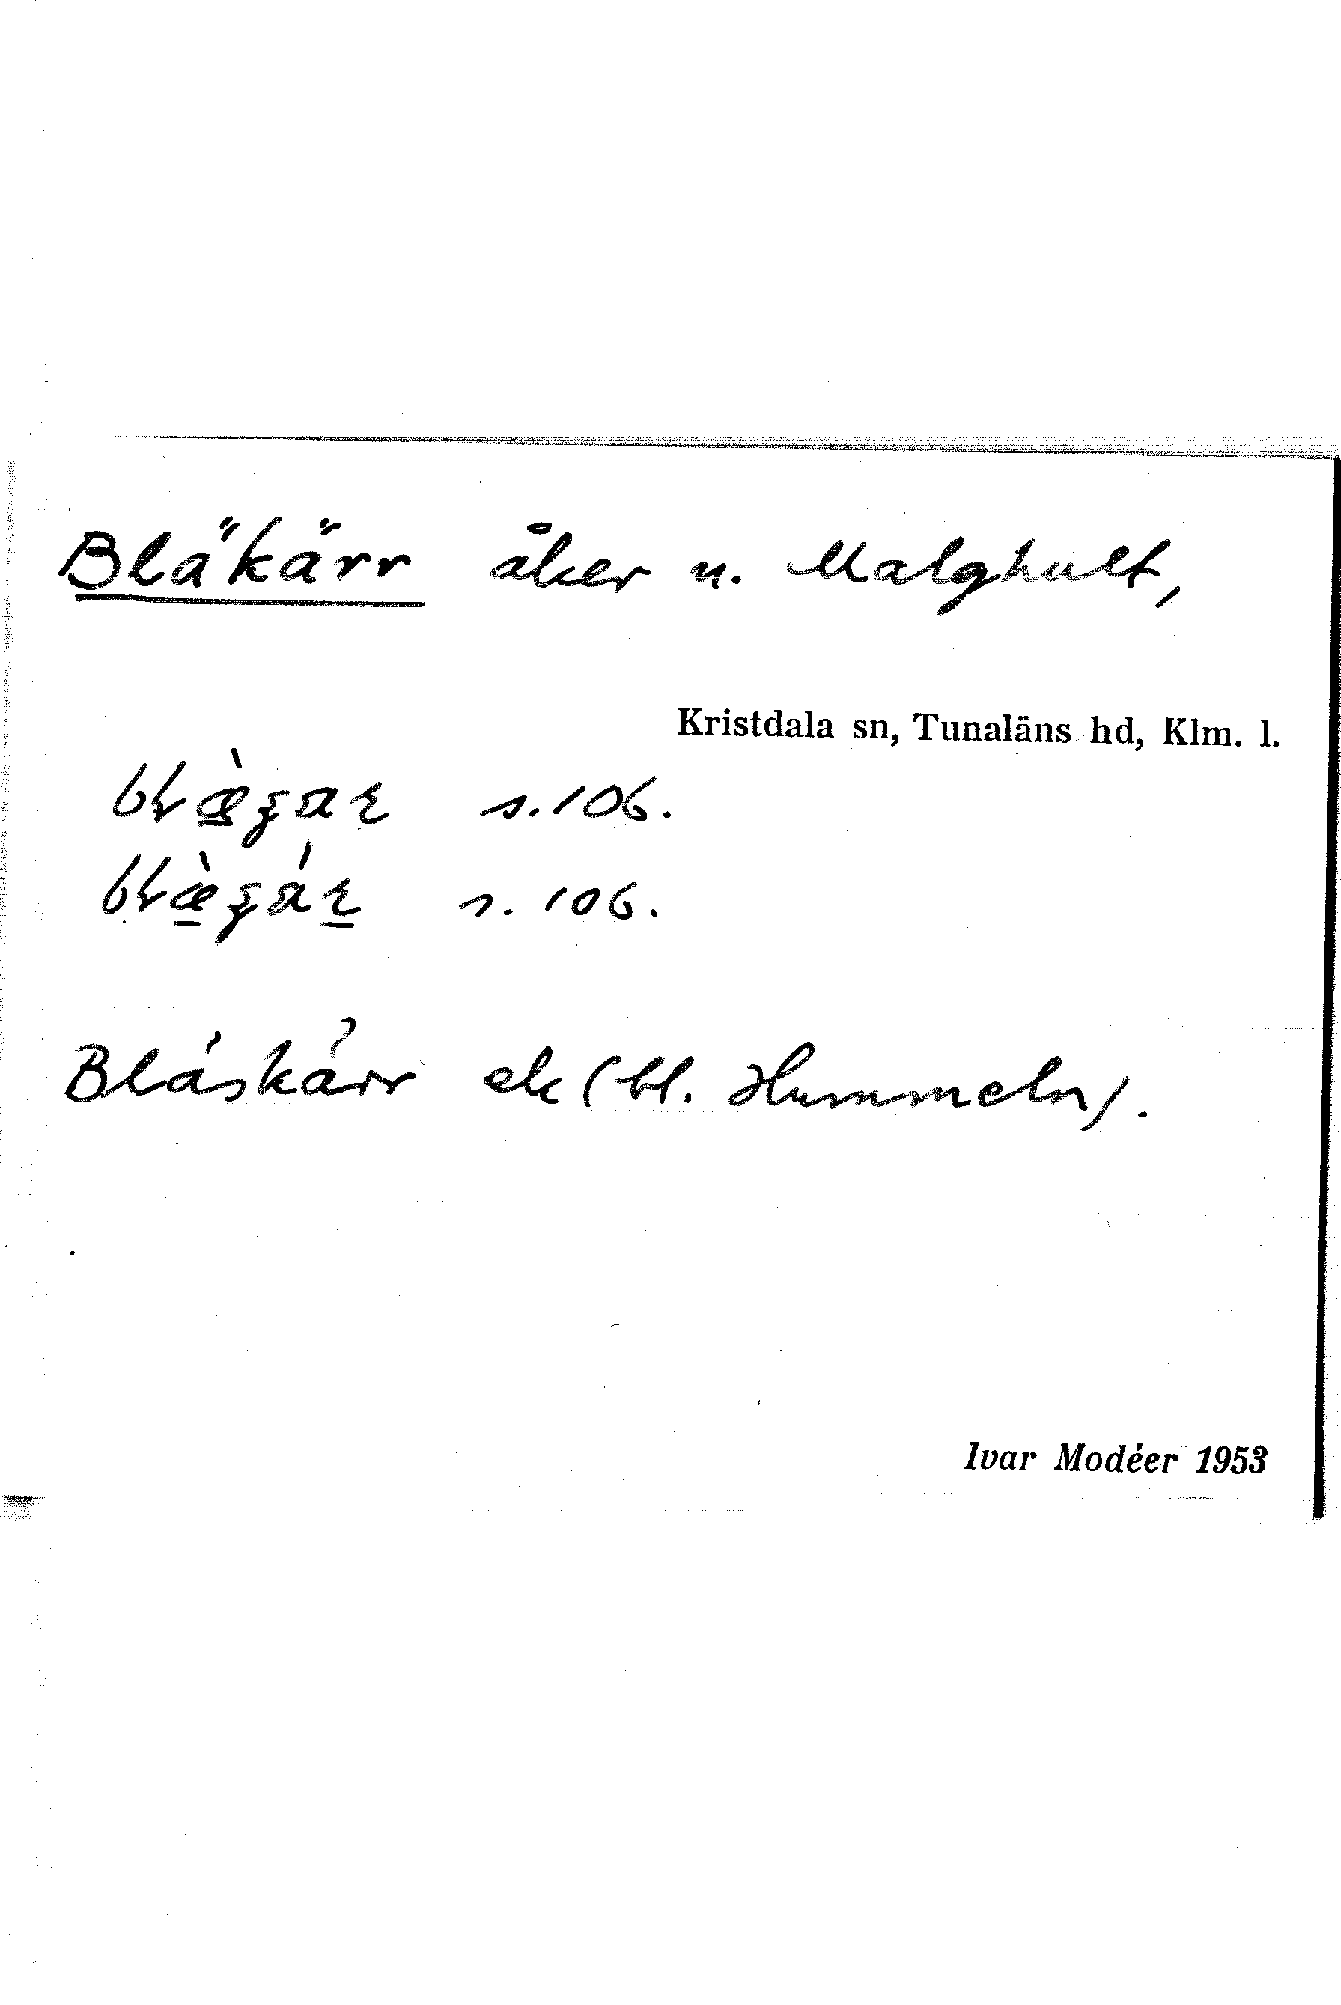 Bläkärr åker u. Malghult,
Kristdala sn, Tunaläns hd, Klm. l.
s. 106.
s. 106.
Bläskärr ek (bl. Hummeln).
Ivar Modéer 1953